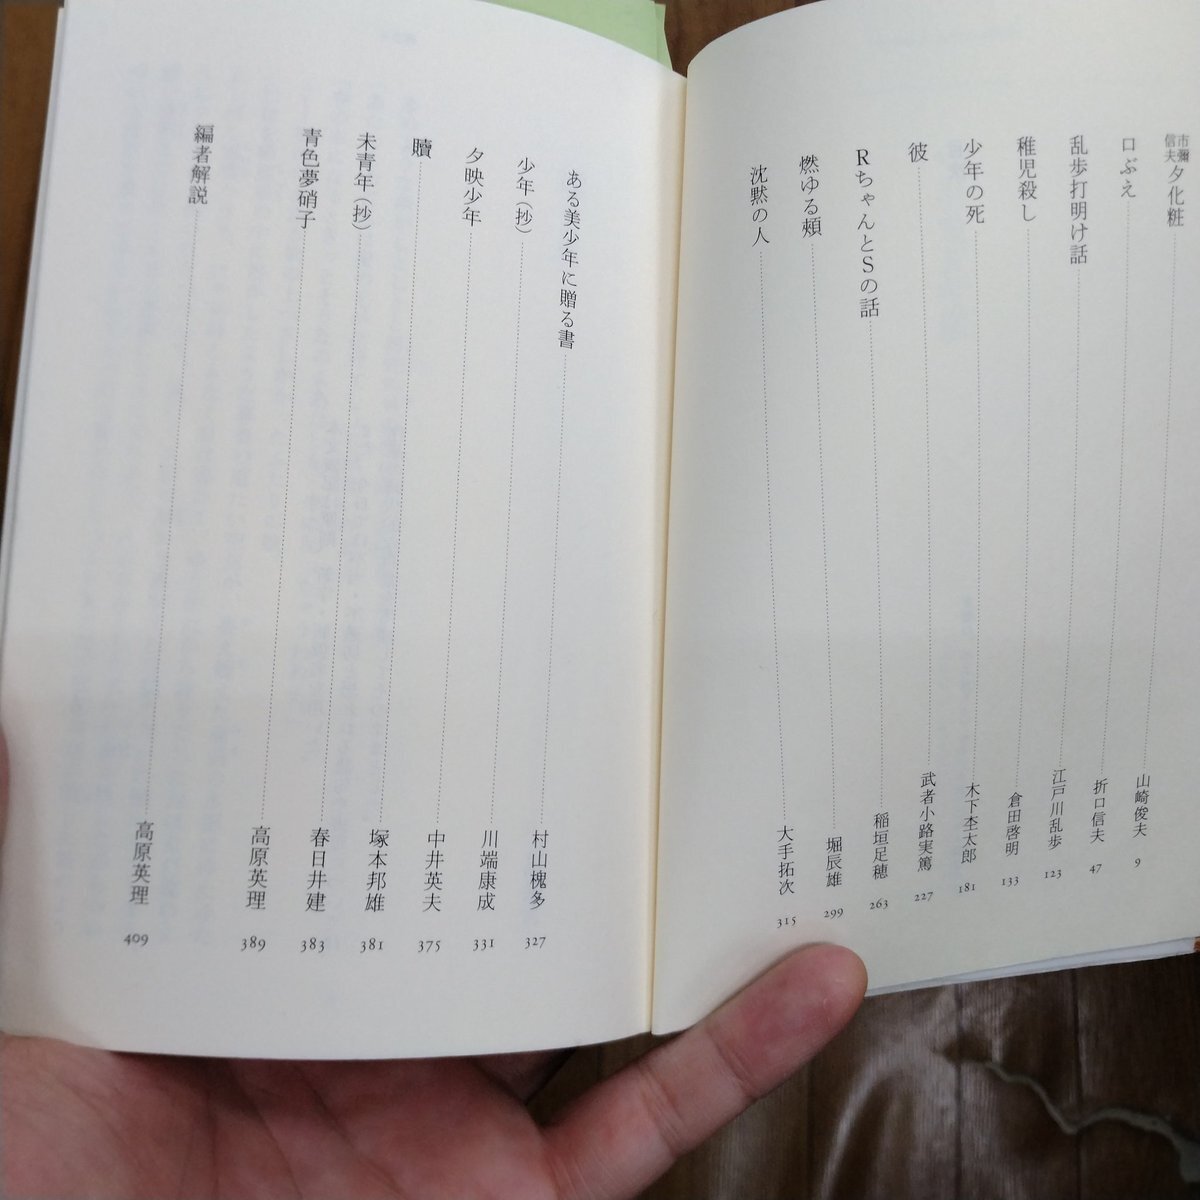 市彌信夫 夕化粧 山崎俊夫 9
口ぶえ 折口信夫 47
乱歩打明け話 江戸川乱歩 123
稚児殺し 倉田啓明 133
少年の死 木下杢太郎 181
彼 武者小路実篤 227
RちゃんとSの話 稲垣足穂 263
燃ゆる頰 堀辰雄 299
沈黙の人 大手拓次 315
ある美少年に贈る書 村山槐多 327
少年(抄) 川端康成 331
夕映少年 中井英夫 375
贖 塚本邦雄 381
未青年(抄) 春日井建 383
青色夢硝子 高原英理 389
編者解説 高原英理 409